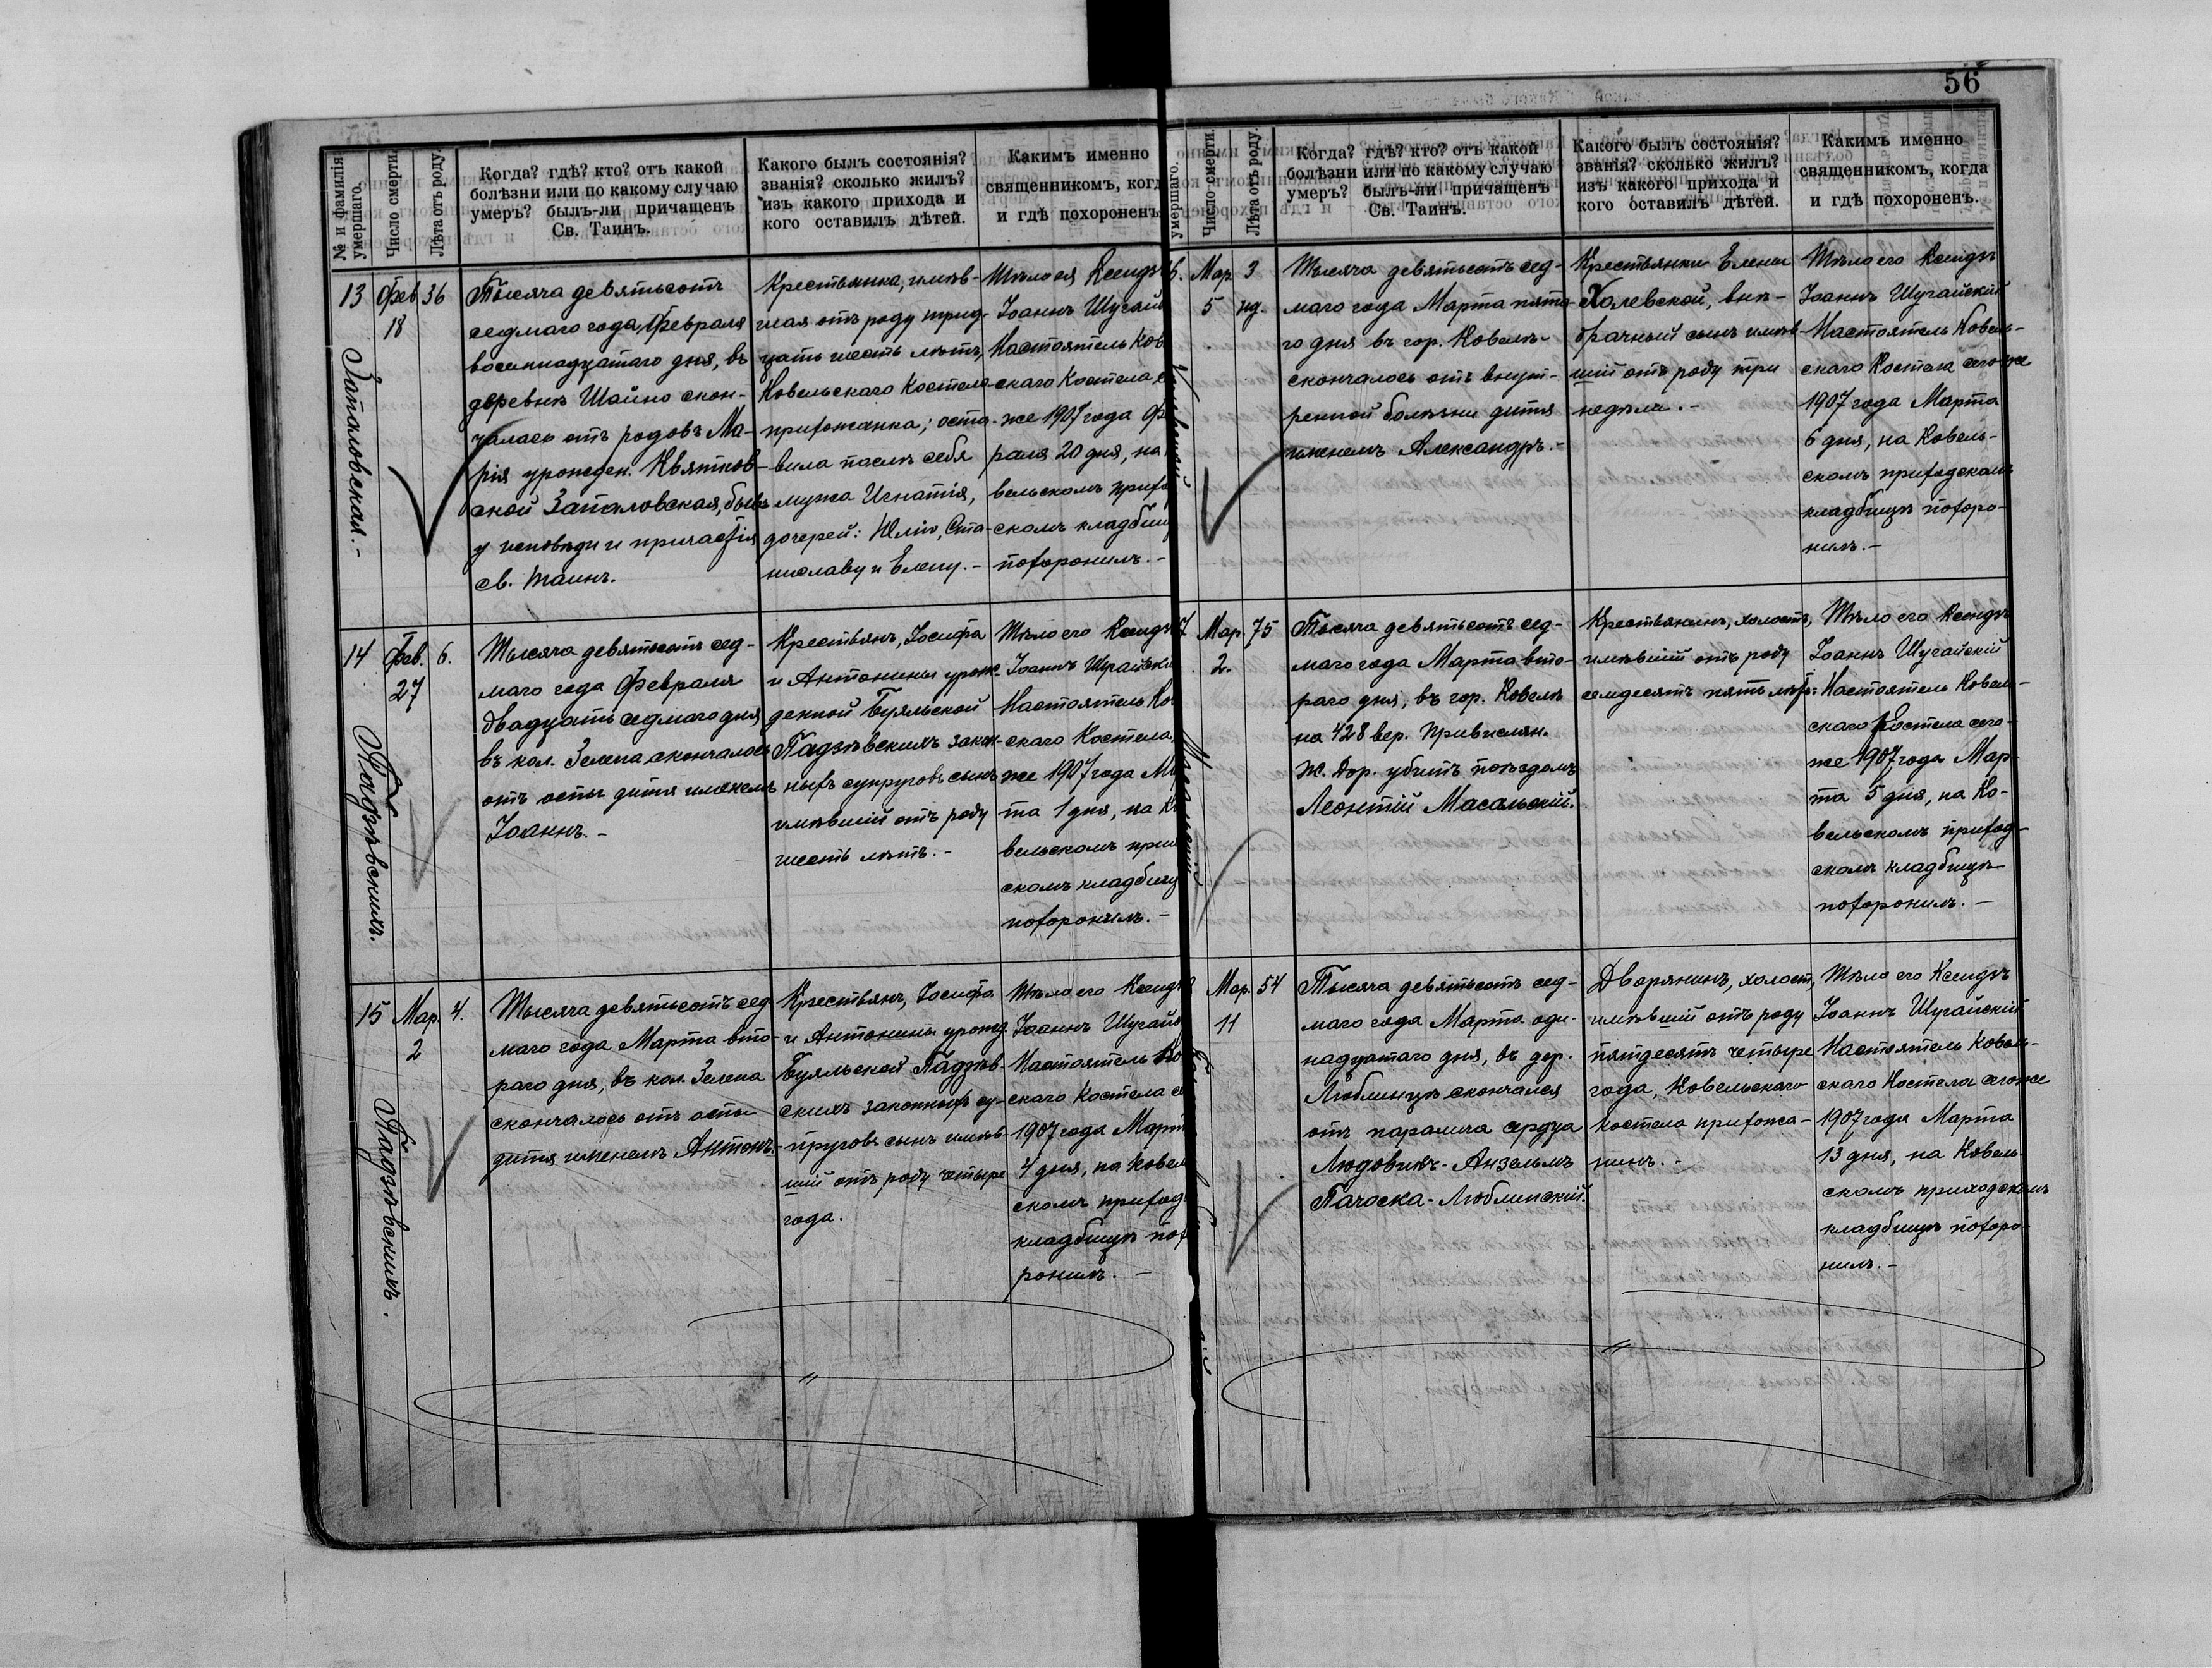 56
№ и фамилія
умершаго.
Число смерти.
Лѣта отъ роду.
Когда? гдѣ? кто? отъ какой
болѣзни или по какому случаю
умеръ? былъ-ли причащенъ
Св. Таинъ.
Какого былъ состоянія?
званія? сколько жилъ?
изъ какого прихода и
кого оставилъ дѣтей.
Какимъ именно
священникомъ, когд
и гдѣ похороненъ
13
Запаловская.-
Фев
18
36
Тысяча девятьсотъ
седмаго года, Февраля
восемнадцатаго дня, въ
деревнѣ Шайно скон-
чалась отъ родовъ Ма-
рія урожден. Квятков-
ской Запаловская, бывъ
у исповѣди и причастія
св. таинъ.
Крестьянка, имѣв-
шая отъ роду трид-
цать шесть лѣтъ,
Ковельскаго Костела
прихожанка; оста-
вила послѣ себя
мужа Игнатія,
дочерей: Юлію, Ста-
ниславу и Елену.-
Тѣло ея Ксендзъ
Іоаннъ Шучай
Настоятель Ков
скаго Костела с
же 1907 года Ф
раля 20 дня, на
вельскомъ прихо
скомъ кладбищ
похоронилъ.-
14
Падзѣвскихъ.
Фев.
27
6.
Тысяча девятьсотъ сед-
маго года Февраля
двадцать седмаго дня
въ кол. Зелена скончалось
отъ оспы дитя именемъ
Іоаннъ.-
Крестьянъ, Іосифа
и Антонины урож-
денной Буяльской
Падзѣвскихъ закон-
ныхъ супруговъ сынъ
имѣвшій отъ роду
шесть лѣтъ.-
Тѣло его Ксендзъ
Іоаннъ Шучайск
Настоятель Ко
скаго Костела
же 1907 года Ма
та 1 дня, на К
вельскомъ прих
скомъ кладбищ
похоронилъ.-
15
Падзѣвскихъ.
Мар.
2
4.
Тысяча девятьсотъ сед-
маго года Марта вто-
раго дня, въ кол. Зелена
скончалось отъ оспы
дитя именемъ Антонъ.-
Крестьянъ, Іосифа
и Антонины урожд.
Буяльской Падзѣв-
скихъ законныхъ су-
пруговъ сынъ имѣв-
шій отъ роду четыре
года.
Тѣло его Ксендз
Іоаннъ Шучайс
Настоятель Ко
скаго Костела с
1907 года Март
4 дня, на Ковел
скомъ приход
кладбищѣ пох
ронилъ.-
умершаго.
Число смерти.
Лѣта отъ роду.
Когда? гдѣ? кто? отъ какой
болѣзни или по какому случаю
умеръ? былъ-ли причащенъ
Св. Таинъ.
Какого былъ состоянія?
званія? сколько жилъ?
изъ какого прихода и
кого оставилъ дѣтей.
Какимъ именно
священникомъ, когда
и гдѣ похороненъ.
6.
Мар
5
3
нд.
Тысяча девятьсотъ сед-
маго года Марта пята-
го дня въ гор. Ковелѣ-
скончалось отъ внут-
ренной болѣзни дитя
именемъ Александръ.-
Крестьянки Елены
Холевской, внѣ-
брачный сынъ имѣв-
шій отъ роду три
недѣли.-
Тѣло его Ксендзъ
Іоаннъ Шучайскій
Настоятель Ковель-
скаго Костела сего же
1907 года Марта
6 дня, на Ковель-
скомъ приходскомъ
кладбищѣ похоро-
нилъ.-
7
Мар.
2.
75
Тысяча девятьсотъ сед-
маго года Марта вто-
раго дня, въ гор. Ковелѣ
на 428 вер. Привислян.
Ж. Дор. убитъ поѣздомъ
Леонтій Масальскій.
Крестьянинъ, холостъ,
имѣвшій отъ роду
семдесятъ пять лѣтъ.
Тѣло его Ксендзъ
Іоаннъ Шучайскій
Настоятель Ковел-
скаго Костела сего-
же 1907 года Мар-
та 5 дня, на Ко-
вельскомъ приход-
скомъ кладбищѣ
похоронилъ.-
8
Мар.
11
54
Тысяча девятьсотъ сед-
маго года Марта оди-
надцатаго дня, въ дер.
Люблинцѣ скончался
отъ паралича сердца
Людовикъ-Анзельмъ
Пачоска-Люблинскій.
Дворянинъ, холост,
имѣвшій отъ роду
пятдесятъ четыре
года, Ковельскаго
костела прихожа-
нинъ.-
Тѣло его Ксендзъ
Іоаннъ Шучайскій
Настоятель Ковель-
скаго Костела сего же
1907 года Марта
13 дня, на Ковель-
скомъ приходскомъ
кладбищѣ похоро-
нилъ.-